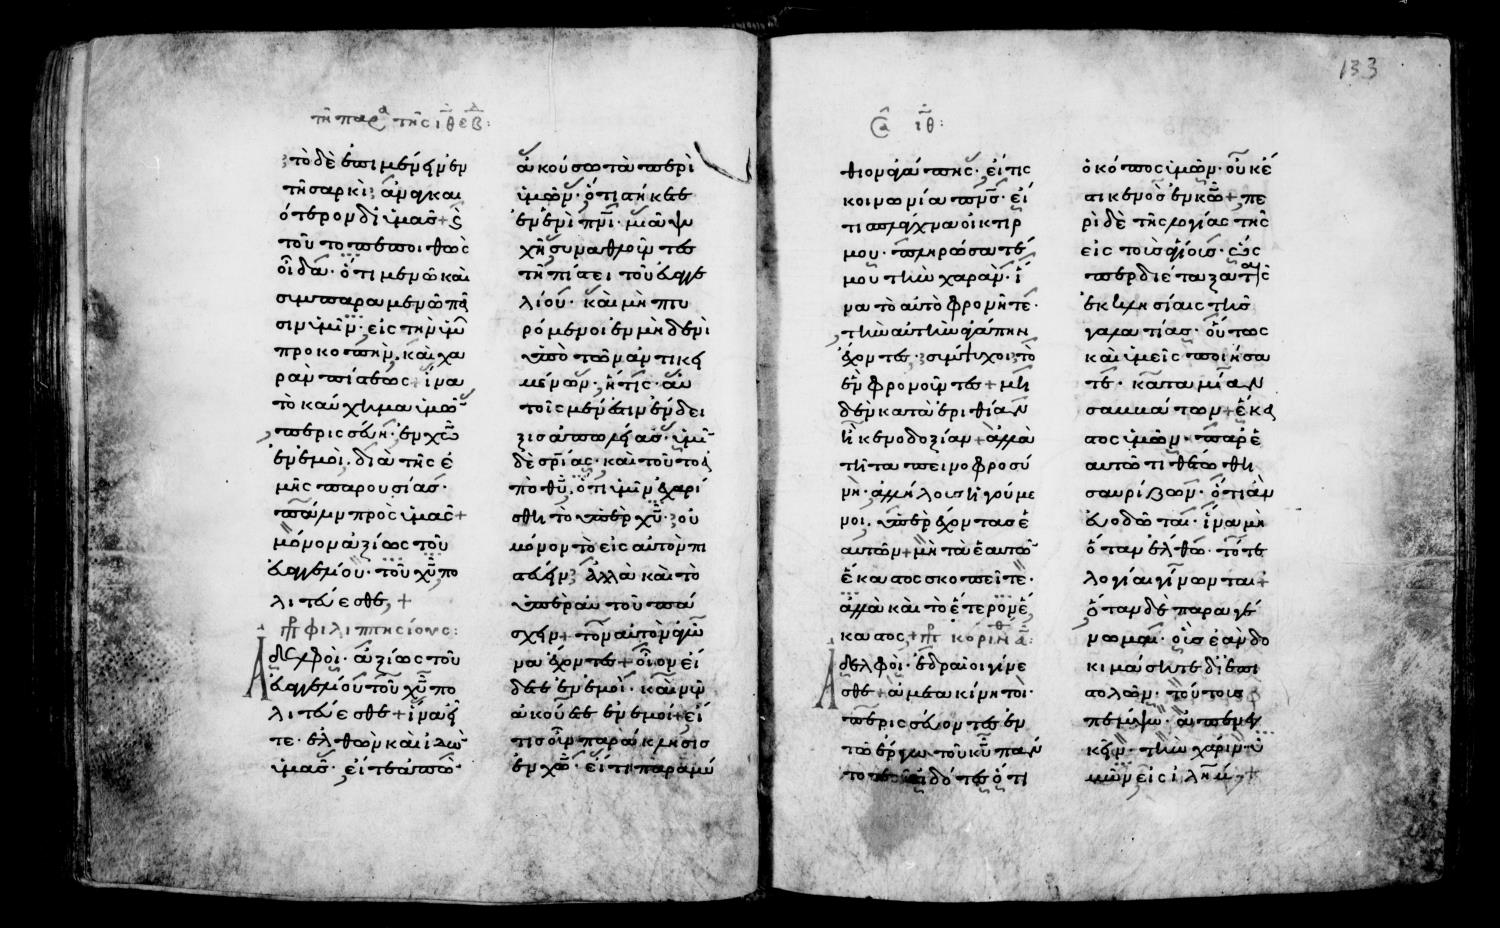 τῆ παρα τῆς ιθ εβδ:
τὸ δὲ ἐπιμένειν ἐν
τῆ σαρκὶ· ἀναγκαι
ότερον δι ὑμᾶς + ϗ
τοῦτο πεποιθὼς
οἶδα· ὅτι μενῶ καὶ
συμπαραμενῶ πᾶ
σιν ὑμῖν· εἰς τὴν ὑμῶ
προκοπὴν, καὶ χα
ρὰν πίστεως· ἵνα
τὸ καύχημα ὑμῶ
περισσεύη· ἐν χῶ
ἐν ἐμοὶ· διὰ τῆς ἐ
μῆς παρουσίας·
πάλιν πρὸς ὑμᾶς +
μόνον ἀξίως τοῦ
εὐαγγελίου· τοῦ χῦ πο
λιτεύεσθε, +
πρ φιλιππησίους:
Ἀδελφοὶ· ἀξίως τοῦ
εὐαγγελίου τοῦ χῦ πο
λιτεύεσθε + ἵνα εἴ
τε· ἐλθὼν καὶ ἰδὼ
ὑμᾶς· εἴτε ἀπὼ
ἀκούσω τὰ περὶ
ὑμῶν· ὅτι στήκετε
ἐν ἑνὶ πνι· μιᾶ ψυ
χῆ συναθλοῦντες
τῆ πίστει τοῦ εὐαγγε
λίου· καὶ μὴ πτυ
ρόμενοι ἐν μηδενὶ
ὑπὸ τῶν ἀντικει
μένων· ἥτις· αὐ
τοῖς μέν ἐστιν ἔνδει
ξις ἀπωλείας· ὑμῖ
δὲ σρίας· καὶ τοῦτο ἀ
πὸ θῦ· ὅτι ὑμῖν ἐχαρί
σθη τὸ ὑπὲρ χῦ· οὐ
μόνον τὸ εἰς αὐτὸν πι
στεύειν· ἀλλὰ καὶ τὸ
ὑπὲρ αὐτοῦ πά
σχειν + τὸν αὐτὸν ἀγῶ
να ἔχοντες + οἷον εἴ
δετε ἐν ἐμοὶ· καὶ νῦν
ἀκούετε ἐν ἐμοί + εἴ
τις οὖν παράκλησις
ἐν χῶ· εἴ τι παραμύ
σα ιθ:
133
θιον ἀγάπης· εἴ τις
κοινωνία πνς· εἴ
τι σπλάγχνα οἰκτιρ
μου· πληρώσατέ
μου τὴν χαρὰν· ἵ
να τὸ αὐτὸ φρονῆτε·
τὴν αὐτὴν ἀγάπην
ἔχοντες· σύμψυχοι τὸ
ἓν φρονοῦντες + μη
δὲν κατὰ ἐριθίαν
ἢ κενοδοξίαν + ἀλλὰ
τῆ ταπεινοφροσύ
νη· ἀλλήλους ἡγούμε
νοι· ὑπερέχοντας ἑ
αυτῶν + μὴ τὰ ἑαυτῶ
ἕκαστος σκοπεῖτε·
ἀλλὰ καὶ τὸ ἑτέρον ἕ
καστος, + πρ κορινθ α:
Ἀδελφοὶ· ἑδραῖοι γίνε
σθε + ἀμετακίνητοι·
περισσεύοντες ἐν
τῶ ἔργω τοῦ κῦ πάν
τοτε εἰδότες ὅτι
ὁ κόπος ὑμῶν· οὐκ ἔ
στι κενὸς ἐν κῶ +, πε
ρὶ δὲ τῆς λογίας τῆς
εἰς τοὺς ἁγίους· ὡς
περ διέταξα ταῖς
ἐκκλησίαις τῆς
γαλατίας· οὕτως
καὶ ὑμεῖς ποιήσα
τε· κατα μίαν
σαββάτων + ἕκα
στος ὑμῶν· παρ ἑ
αυτῶ τιθέτω θη
σαυρίζων· ὅτι ἂν
εὐοδῶται· ἵνα μὴ
ὅταν ἔλθω· τότε
λογίαι γίνωνται +
ὅταν δὲ παραγέ
νωμαι· οὓς ἐὰν δο
κιμάσητε δι ἐπι
στολῶν· τούτους
πέμψω· ἀπενεγ
κεῖν· τὴν χάριν ὑ
μῶν εἰς ιλημ, +